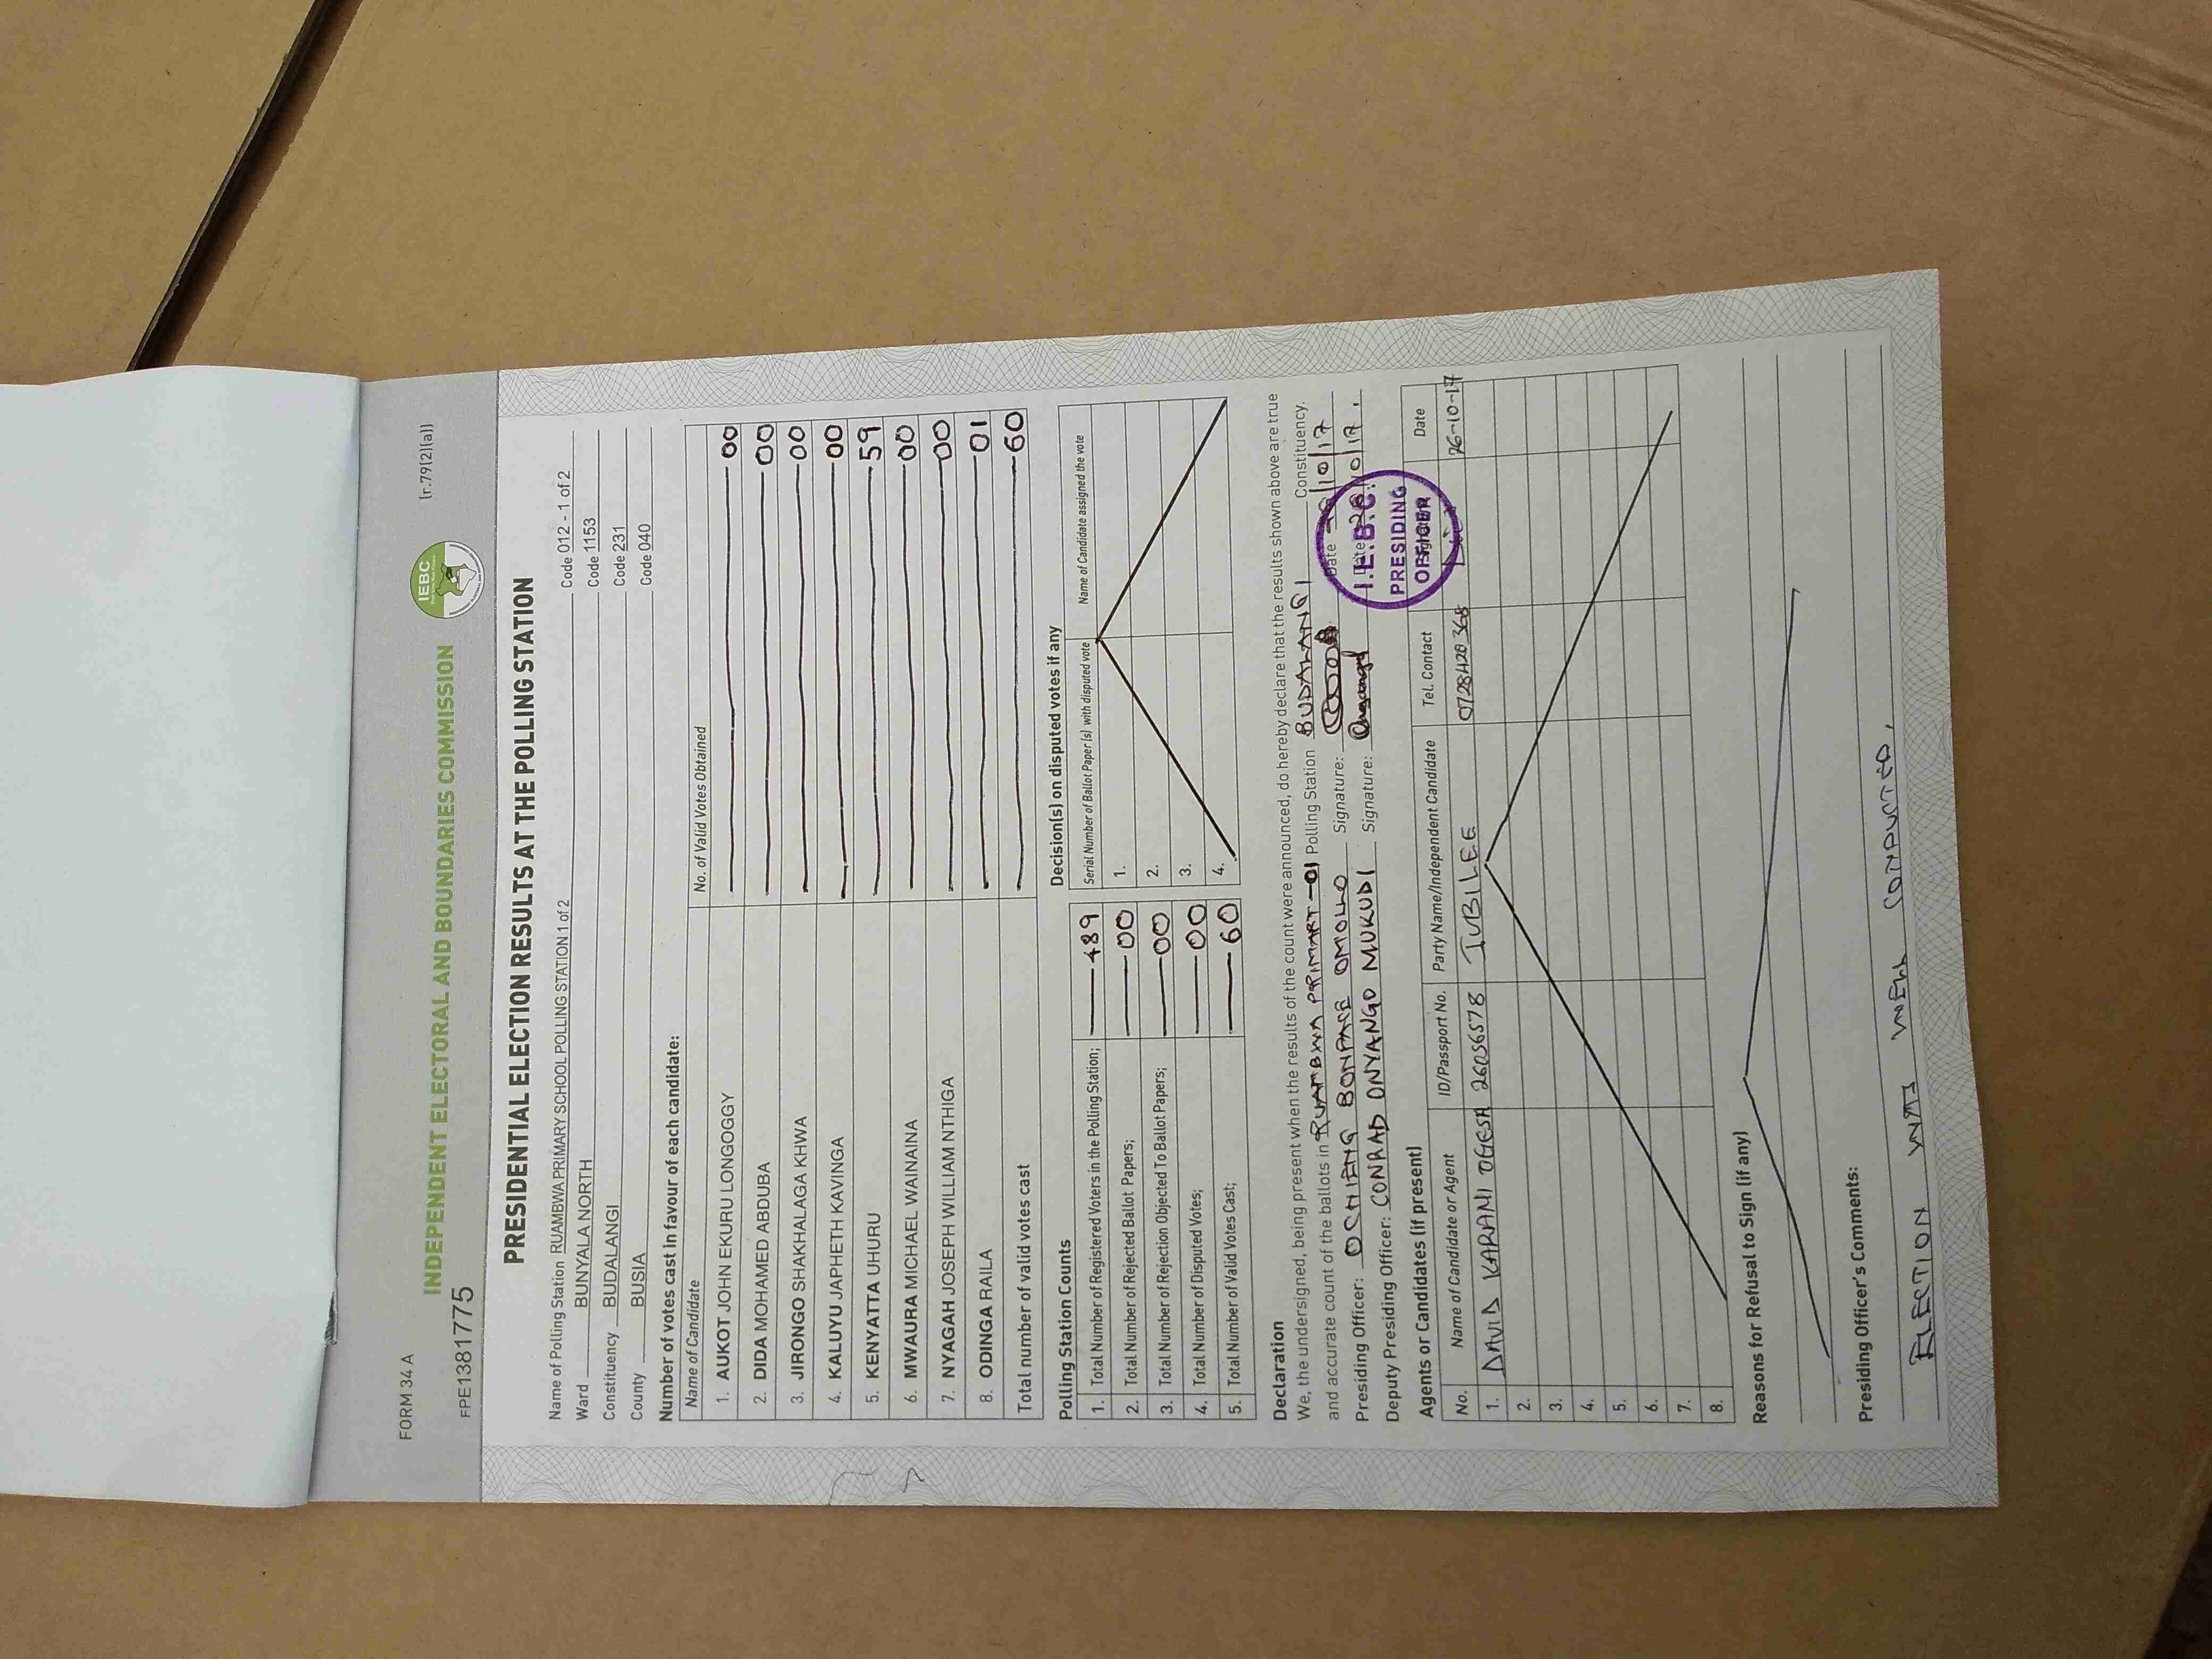 FORM 34 A
(r.79(2)(a))
INDEPENDENT ELECTORAL AND BOUNDARIES COMMISSION
IEBC
FPE1381775
PRESIDENTIAL ELECTION RESULTS AT THE POLLING STATION
Name of Polling Station RUAMBWA PRIMARY SCHOOL POLLING STATION 1 of 2 Code 012 - 1 of 2
Ward BUNYALA NORTH Code 1153
Constituency BUDALANGI Code 231
County BUSIA Code 040
Number of votes cast in favour of each candidate:
Name of Candidate No. of Valid Votes Obtained
1. AUKOT JOHN EKURU LONGOGGY 00
2. DIDA MOHAMED ABDUBA 00
3. JIRONGO SHAKHALAGA KHWA 00
4. KALUYU JAPHETH KAVINGA 00
5. KENYATTA UHURU 59
6. MWAURA MICHAEL WAINAINA 00
7. NYAGAH JOSEPH WILLIAM NTHIGA 00
8. ODINGA RAILA 01
Total number of valid votes cast 60
Polling Station Counts
1. Total Number of Registered Voters in the Polling Station; 489
2. Total Number of Rejected Ballot Papers; 00
3. Total Number of Rejection Objected To Ballot Papers; 00
4. Total Number of Disputed Votes; 00
5. Total Number of Valid Votes Cast; 60
Decision(s) on disputed votes if any
Serial Number of Ballot Paper (s) with disputed vote Name of Candidate assigned the vote
1.
2.
3.
4.
Declaration
We, the undersigned, being present when the results of the count were announced, do hereby declare that the results shown above are true
and accurate count of the ballots in RUAMBWA PRIMARY-01 Polling Station BUDALANGI Constituency.
Presiding Officer: OCHIENG BONFACE OMOLLO Signature: Date /10/17
Deputy Presiding Officer: CONRAD ONYANGO MUKUDI Signature: Date
I.E.B.C.
PRESIDING
OFFICER
Agents or Candidates (if present)
No. Name of Candidate or Agent ID/Passport No. Party Name/Independent Candidate Tel. Contact Date
1. DAVID KARANI 26056578 JUBILEE 0728420368 26-10-17
2.
3.
4.
5.
6.
7.
8.
Reasons for Refusal to Sign (if any)
Presiding Officer's Comments:
ELECTION WAS WELL CONDUCTED.